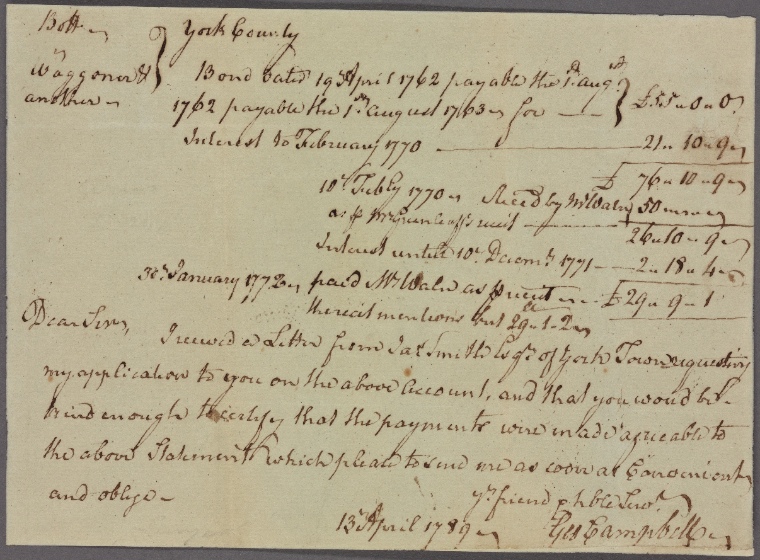 Bott
vs
Waggoner &
another
York County
Bond dated 19 April 1762 payable the 1st Augst
1762 payable the 1st August 1763 for — £55 " 0 " 0
Interest to February 1770 — 21 " 10 " 9
£ 76 " 10 " 9
10th Feby 1770 Reced by Mr Waln 50
as p Mr Greenleafs recit
26 " 10 " 9
Interest until 10th Decemr 1771 — 2 " 18 " 4
30th January 1772 paid Mr Waln as p recit £29 " 9 " 1
the recit mentions but 29 " 1 " 2
Dear Sir,
I received a Letter from Jas Smith Esqr of York Town requesting
my application to you on the above Account, and that you would be
kind enough to certify that the payments were made agreeable to
the above Statement which please to send me as soon as Convenient
and oblige
yr friend & hble Servt
13th April 1789 Geo Campbell